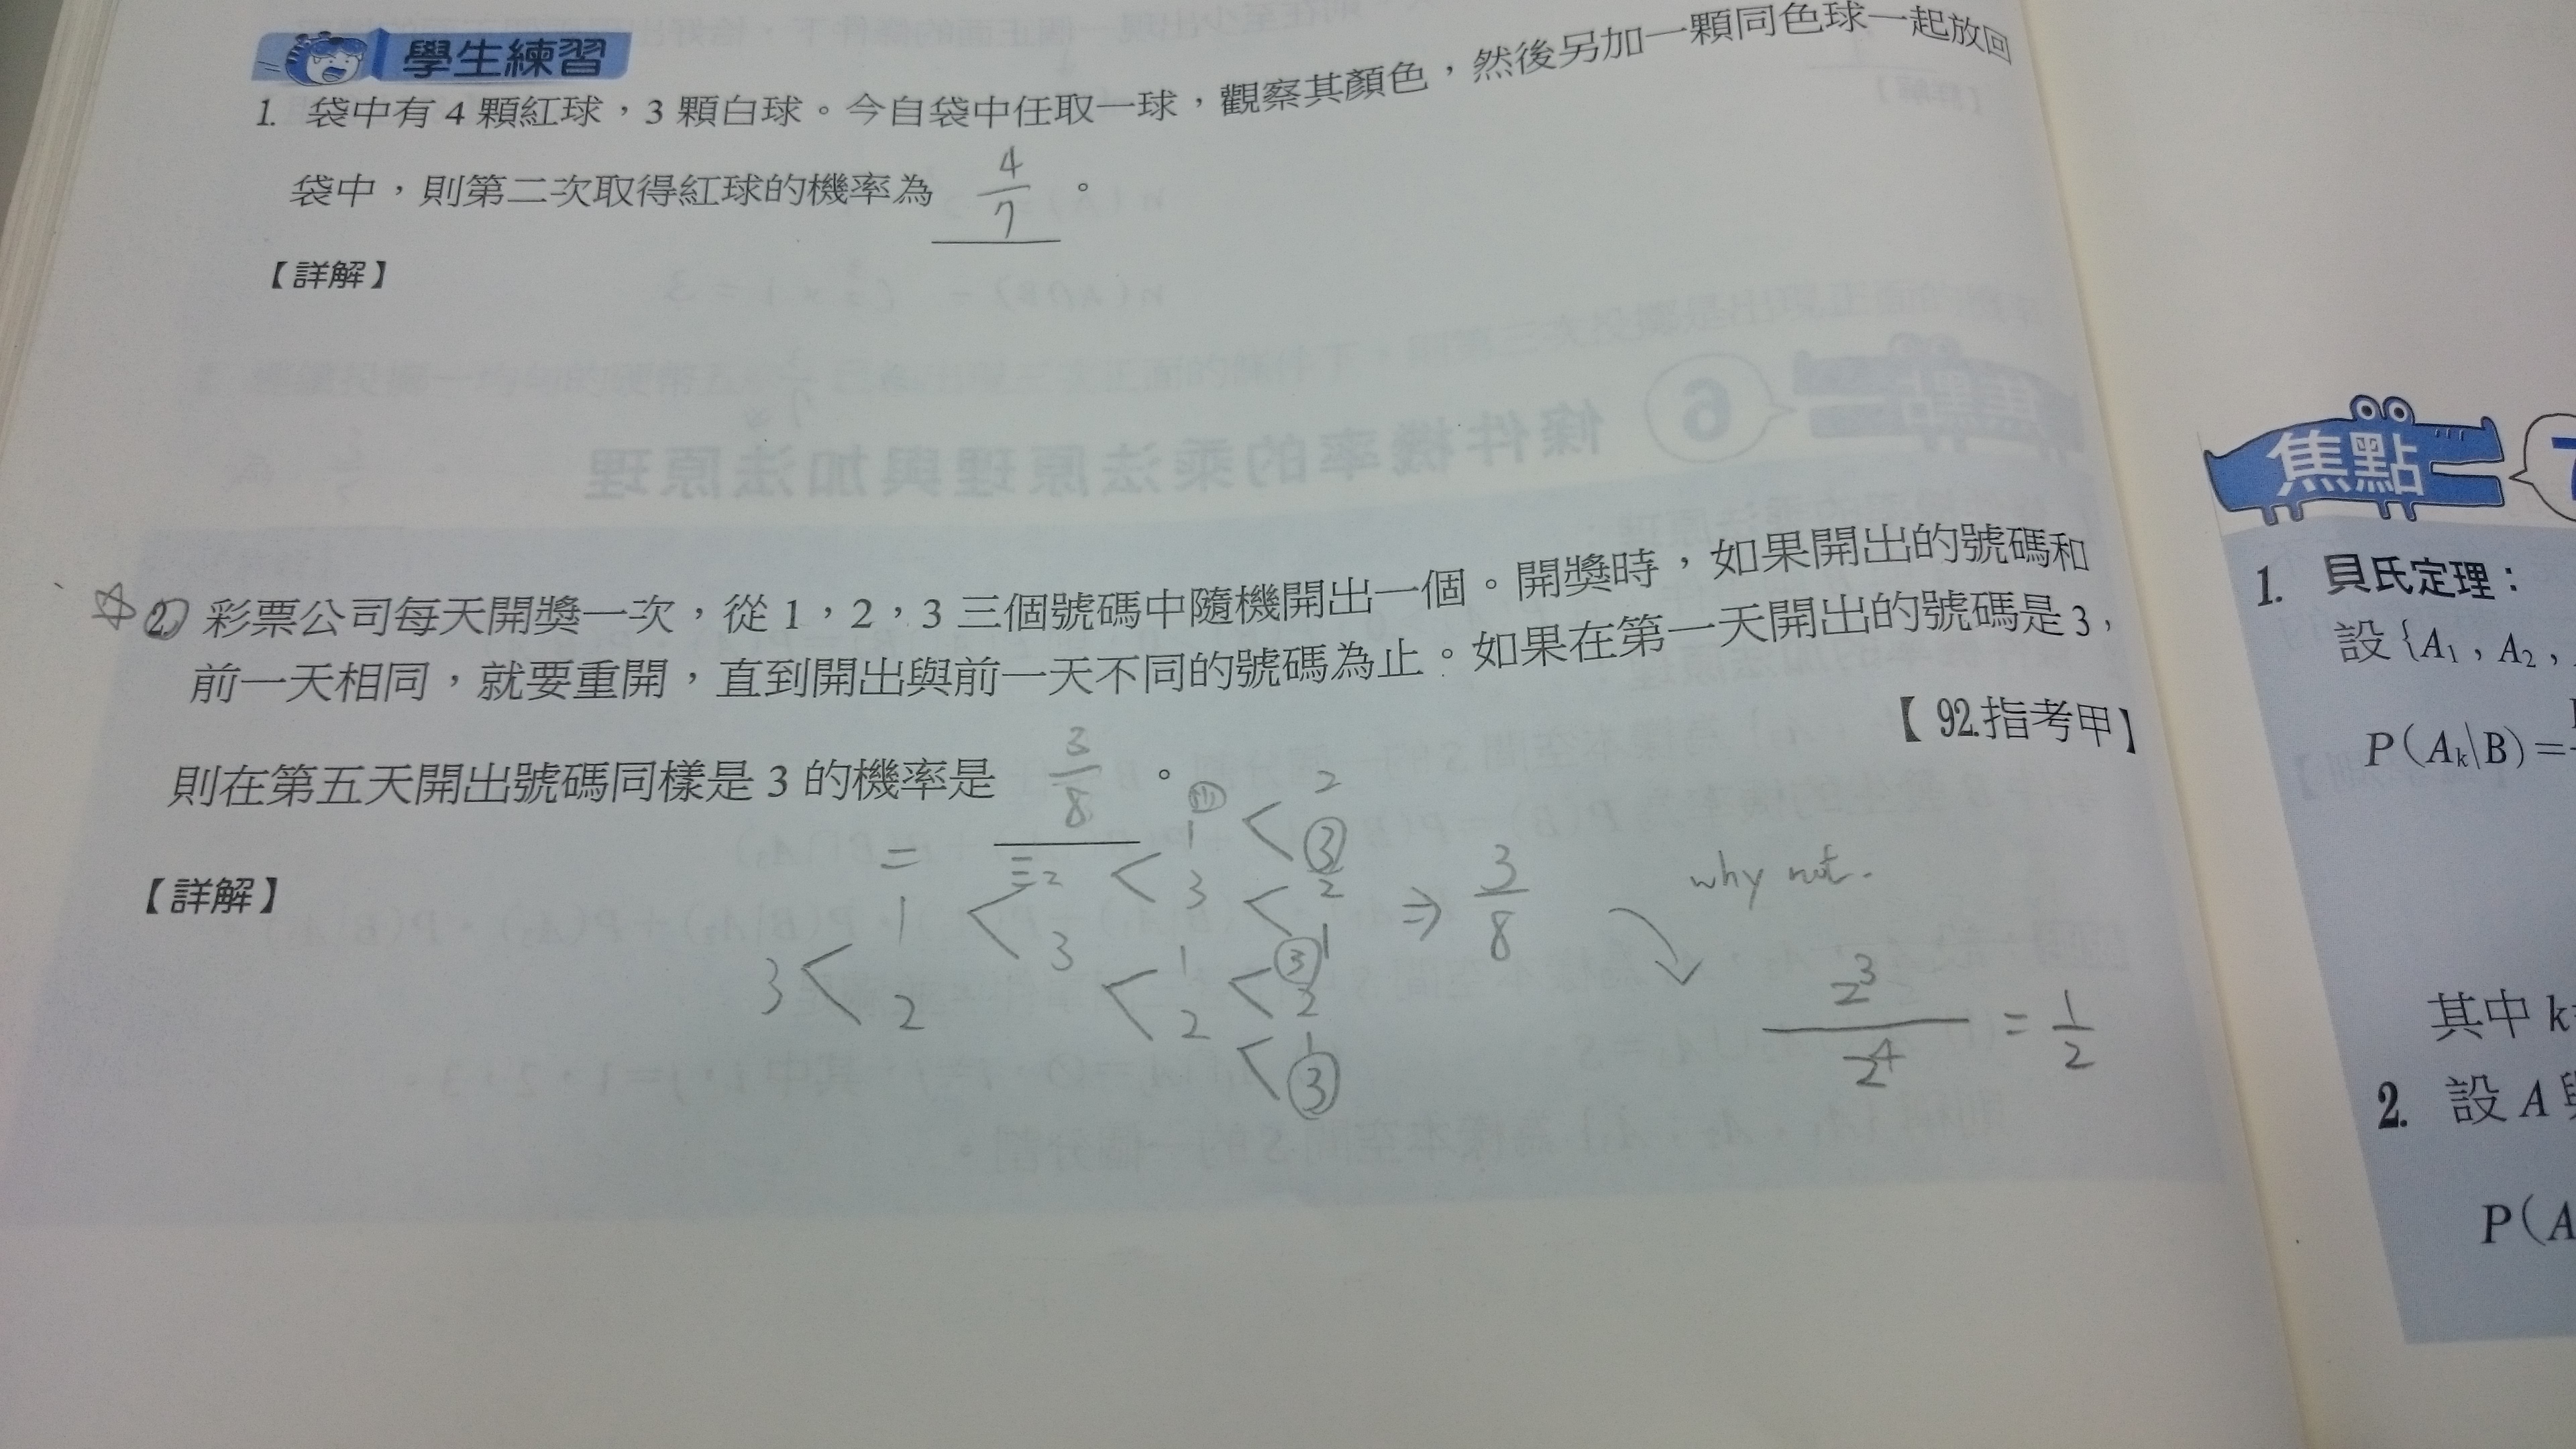 學生練習
1. 袋中有 4 顆紅球，3 顆白球。今自袋中任取一球，觀察其顏色，然後另加一顆同色球一起放回
袋中，則第二次取得紅球的機率為 4/7 。
【詳解】
2. 彩票公司每天開獎一次，從 1，2，3 三個號碼中隨機開出一個。開獎時，如果開出的號碼和
前一天相同，就要重開，直到開出與前一天不同的號碼為止。如果在第一天開出的號碼是 3，
【92.指考甲】
則在第五天開出號碼同樣是 3 的機率是 3/8 。
【詳解】
二 三 四
3 < 1 2
< 2 3
< 1 3
< 1 2
< 2 ③
< 2 1
< ③ 2
< 1 ③
⇒ 3/8
why not.
2^3/2^4 = 1/2
焦點 7
1. 貝氏定理：
設 {A1，A2，
P(Ak|B)=
其中 k
2. 設 A
P(A